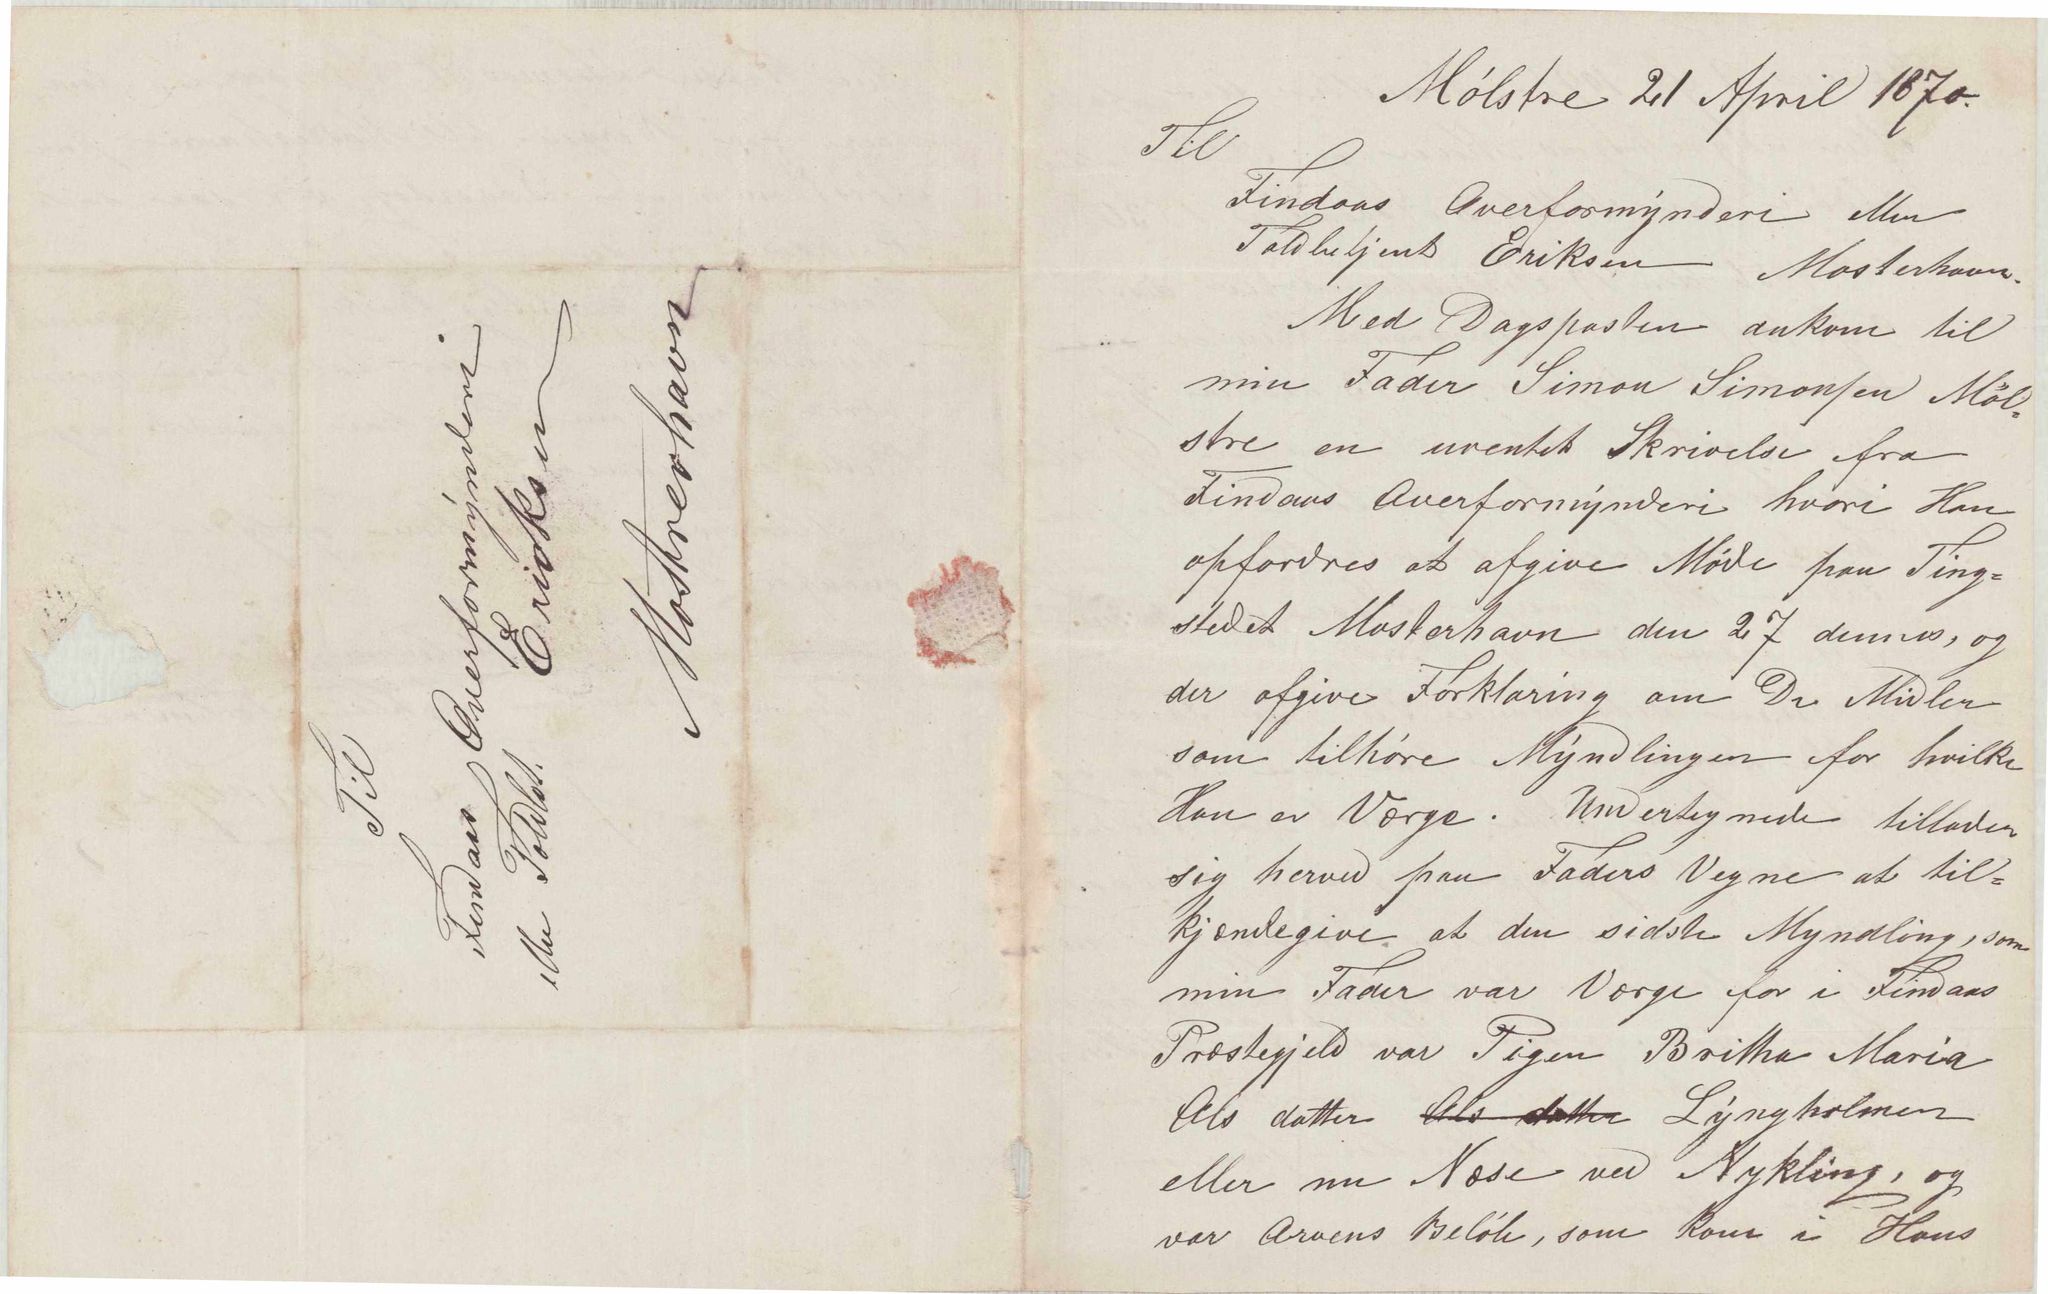 Til
Findaas Overformýnderi
eller Toldbet. Eriksen
Mosterhavn
Mólstre 21 April 1870.
Til
Findaas Overformýnderi eller
Toldbetjent Eriksen Mosterhavn.
Med Dagsposten ankom til
min Fader Simon Simonsen Möl=
stre en uventet Skrivelse fra
Findaas Overformýnderi hvori Han
opfordres at afgive Móde paa Ting=
stedet Mosterhavn den 27 dennes, og
der afgive Forklaring om De Midler
som tilhóre Mýndlingen for hvilke
Han er Værge. Undertegnede tillader
sig herved paa Faders Vegne at til=
kjændegive at den sidste Myndling, som
min Fader var Værge for i Findaas
Præstegjeld var Pigen Britha Maria
Ols datter Ols datter Lýngholmen
eller nu Næse ved Nykling, og
var Arvens Belób, som kom i Hans